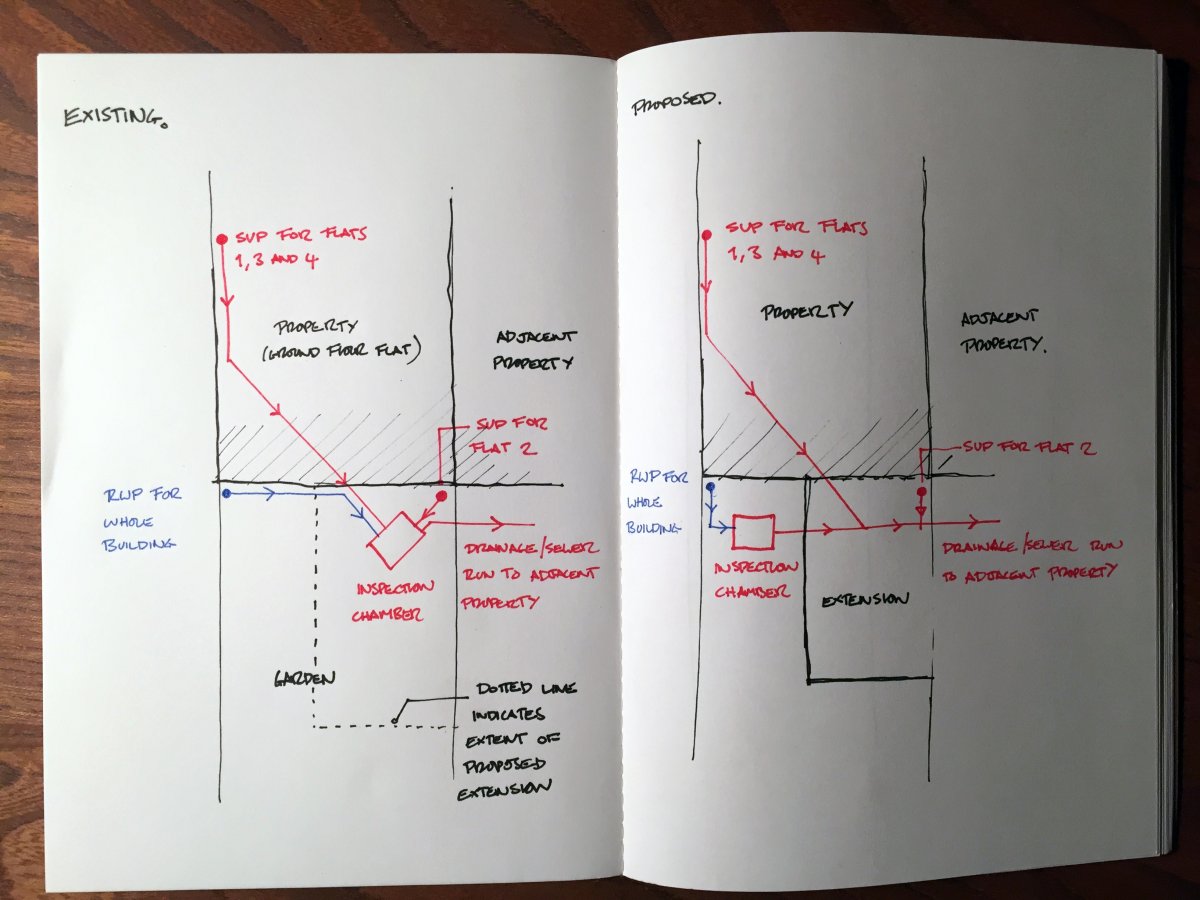 EXISTING.
SVP FOR FLATS
1, 3 AND 4
PROPERTY
(GROUND FLOOR FLAT)
ADJACENT
PROPERTY
SVP FOR
FLAT 2
RWP FOR
WHOLE
BUILDING
DRAINAGE/SEWER
RUN TO ADJACENT
PROPERTY
INSPECTION
CHAMBER
GARDEN
DOTTED LINE
INDICATES
EXTENT OF
PROPOSED
EXTENSION
PROPOSED.
SVP FOR FLATS
1, 3 AND 4
PROPERTY
ADJACENT
PROPERTY.
SVP FOR FLAT 2
RWP FOR
WHOLE
BUILDING
DRAINAGE/SEWER RUN
TO ADJACENT PROPERTY
INSPECTION
CHAMBER
EXTENSION